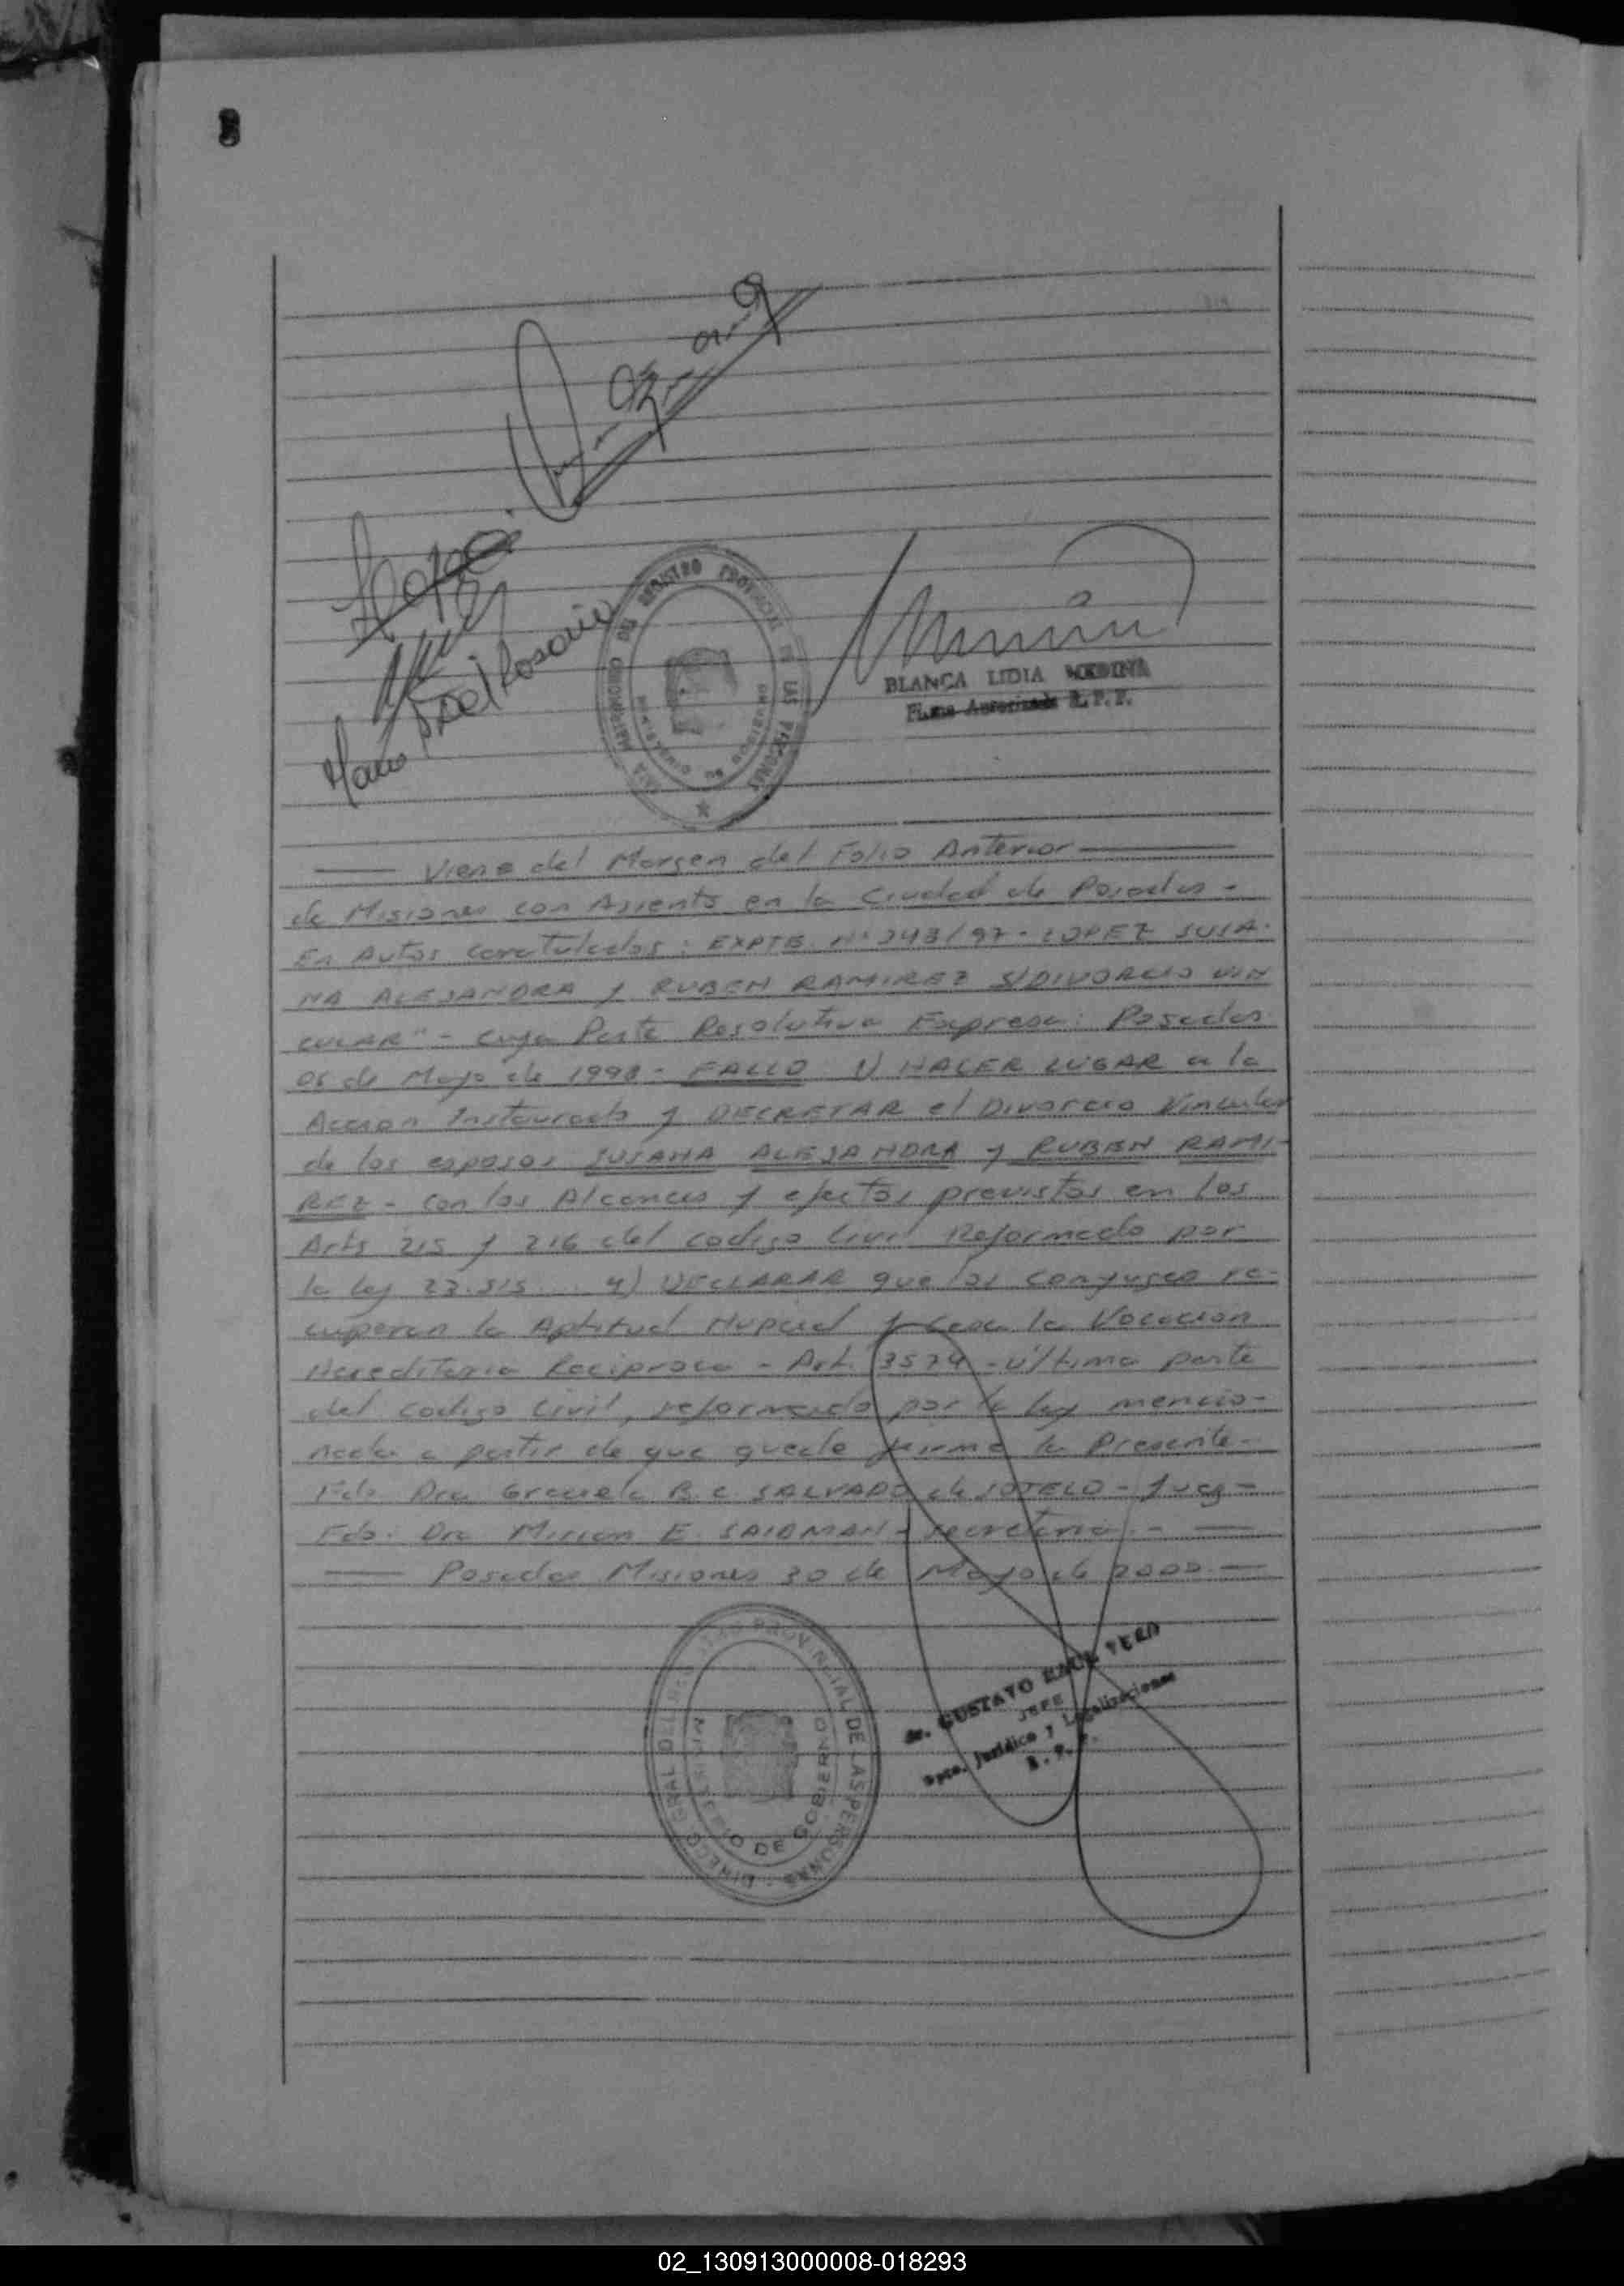 BLANCA LIDIA MEDINA
Firma Autorizada R. P. P.
Viene del Margen del Folio Anterior
de Misiones con Asiento en la Ciudad de Posadas -
En Autos caratulados: EXPTE. Nº 343/97 - LOPEZ SUSA-
NA ALEJANDRA y RUBEN RAMIREZ S/DIVORCIO VIN
CULAR" - Cuya Parte Resolutiva Expresa: Posadas
05 de Mayo de 1998 - FALLO 1) HACER LUGAR a la
Accion Instaurada y DECRETAR el Divorcio Vincular
de los esposos SUSANA ALEJANDRA y RUBEN RAMI-
REZ - con los Alcances y efectos previstos en los
Arts 215 y 216 del codigo Civil Reformado por
la ley 23.515 ... 4) DECLARAR que los conyuges re-
cuperan la Aptitud Nupcial y Cesa la Vocacion
Hereditaria Reciproca - Art. 3574 - última parte
del codigo Civil, reformado por la ley mencio-
nada a partir de que quede firme la Presente -
Fdo. Dra Graciela B. C. SALVADO de SOTELO - Juez -
Fdo: Dra Miriam E. SAIDMAN - secretaria. -
Posadas Misiones 30 de Mayo de 2000. -
PROVINCIAL DE LAS PERSONAS
MINISTERIO DE GOBIERNO
Dr. GUSTAVO RAUL VERO
JEFE
Dpto. Jurídico y Legalizaciones
R. P. P.
02_130913000008-018293